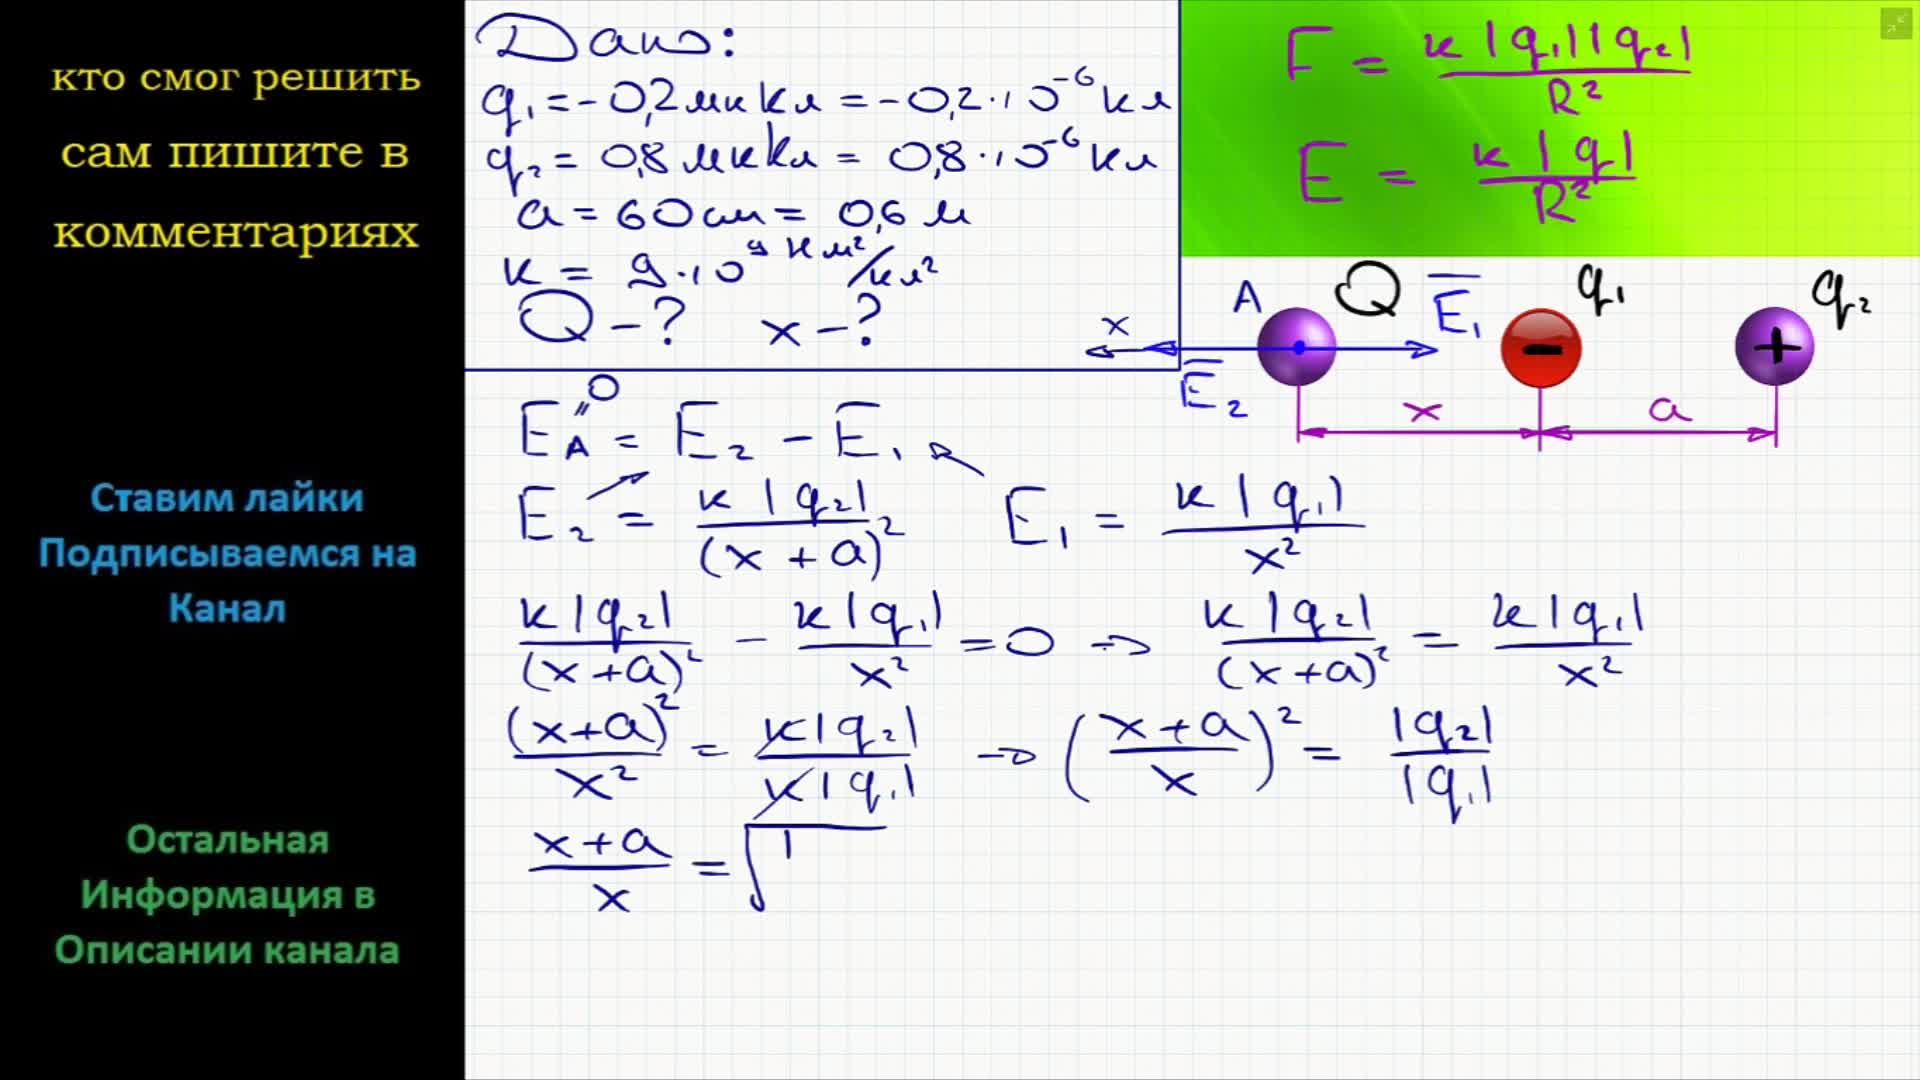 кто смог решить
сам пишите в
комментариях
Ставим лайки
Подписываемся на
Канал
Остальная
Информация в
Описании канала
Дано:
q₁ = -0,2 мкКл = -0,2·10⁻⁶ Кл
q₂ = 0,8 мкКл = 0,8·10⁻⁶ Кл
a = 60 см = 0,6 м
k = 9·10⁹ Н м²/Кл²
Q - ? x - ?
F = k|q₁||q₂| / R²
E = k|q| / R²
A Q E₁ q₁ q₂
x E₂ - +
x a
E_A = E₂ - E₁
0
E₂ = k|q₂| / (x + a)² E₁ = k|q₁| / x²
k|q₂| / (x+a)² - k|q₁| / x² = 0 → k|q₂| / (x+a)² = k|q₁| / x²
(x+a)² / x² = k|q₂| / k|q₁| → ((x+a) / x)² = |q₂| / |q₁|
(x+a) / x = √|